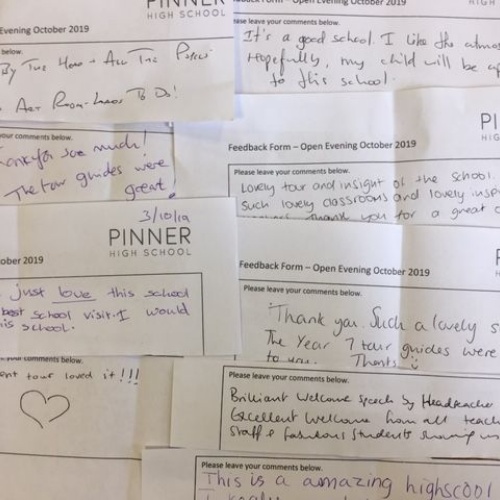 PINNER
HIGH SCHOOL
Evening October 2019
below.
By The Head + All The
Art Room - Loads To Do!
Feedback Form – Open Evening October 2019
HIGH SCHOOL
ease leave your comments below.
It's a good school. I like the
Hopefully, my child will be
to this school.
our comments below.
you soo much!
The tour guides were
great!
PINN
HIGH SCH
Feedback Form – Open Evening October 2019
Please leave your comments below.
Lovely tour and insight of the school.
Such lovely classrooms and lovely
Thank you for a great
3/10/19
PINNER
HIGH SCHOOL
ober 2019
just love this school
best school visit. I would
his school.
Feedback Form – Open Evening October 2019
Please leave your comments below.
Thank you. Such a lovely s
The Year 7 tour guides were
to us. Thanks
comments below.
ent tour loved it!!!
Please leave your comments below.
Brilliant Welcome speech by Headteacher
Excellent Welcome from all teach
Staff & fabulous students showing
Please leave your comments below.
This is a amazing highscool